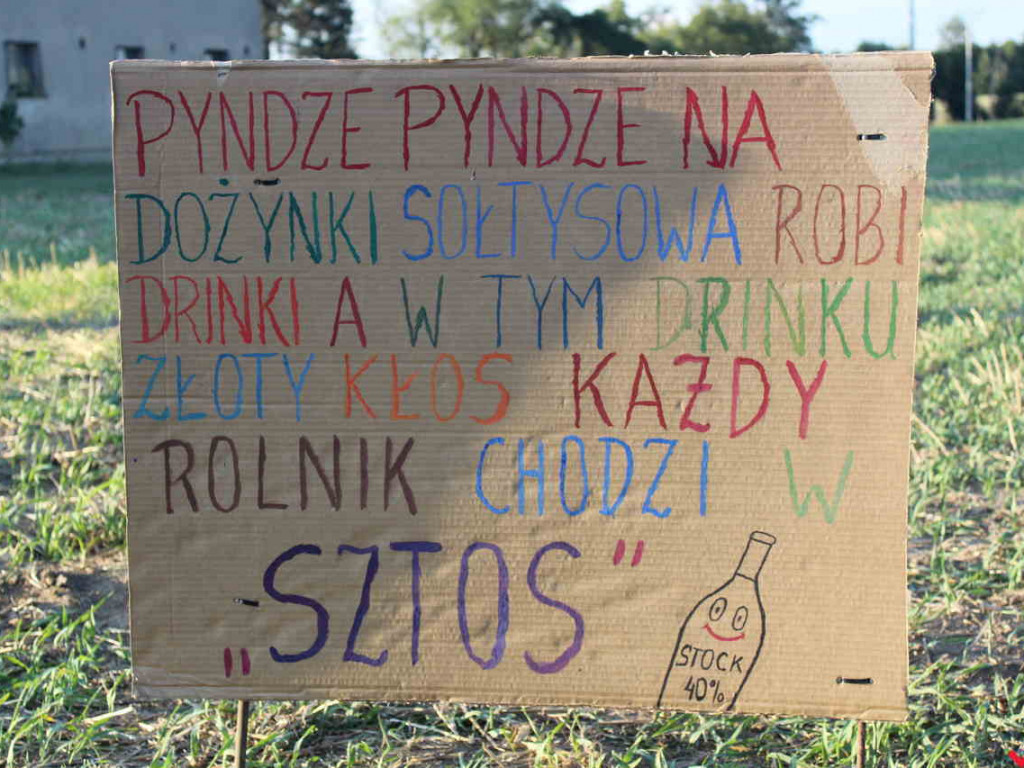 PYNDZE PYNDZE NA
DOŻYNKI SOŁTYSOWA ROBI
DRINKI A W TYM DRINKU
ZŁOTY KŁOS KAŻDY
ROLNIK CHODZI W
„SZTOS"
STOCK
40%